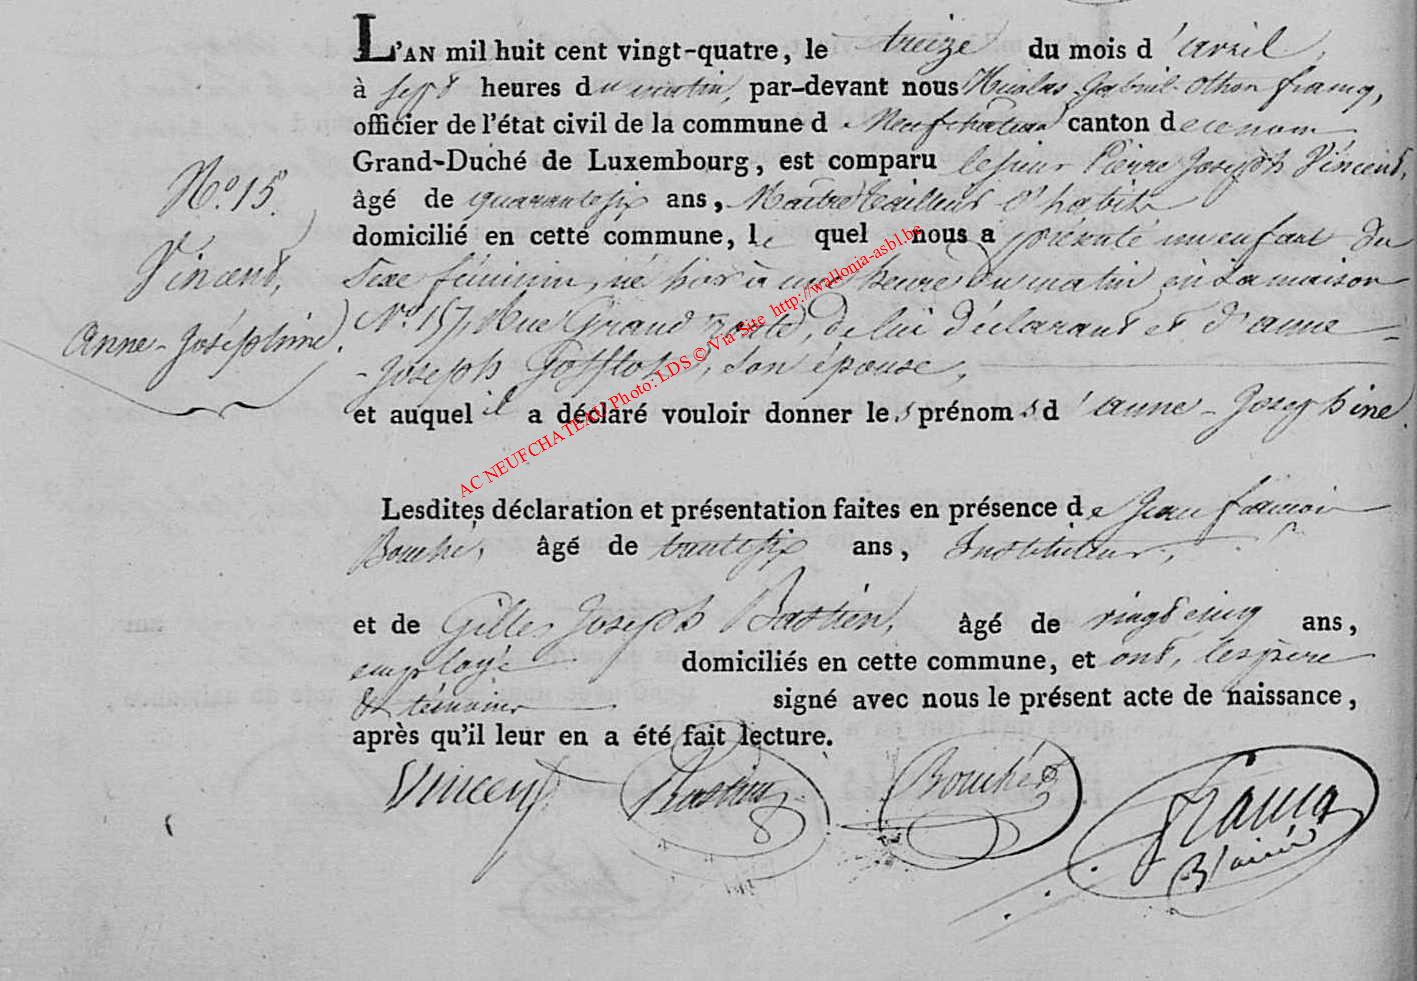 L'AN mil huit cent vingt-quatre, le treize du mois d'avril,
à sept heures du matin, par-devant nous Nicolas-Gabriel-Othon francq,
officier de l'état civil de la commune de Neufchateau canton de ce nom
Grand-Duché de Luxembourg, est comparu le sieur Pierre Joseph Vincent,
N.o 15.
âgé de quarante six ans, Maitre tailleur d'habits
domicilié en cette commune, le quel nous a présenté un enfant du
Vincent,
sexe féminin, né hier à une heure du matin en la maison
Anne-Joséphine.
N.o 157, Rue Grand route, de lui déclarant et d'anne-
-Joseph son épouse,
et auquel il a déclaré vouloir donner les prénoms d'anne-Josephine.
AC NEUFCHATEAU Photo: LDS © Via Site http://wallonia-asbl.be
Lesdites déclaration et présentation faites en présence de Jean françois
Bouché, âgé de trente six ans, Instituteur,
et de Gilles Joseph Bastien, âgé de vingt cinq ans,
employé domiciliés en cette commune, et ont, les père
et témoins signé avec nous le présent acte de naissance,
après qu'il leur en a été fait lecture.
Vincent Bastien Bouché francq